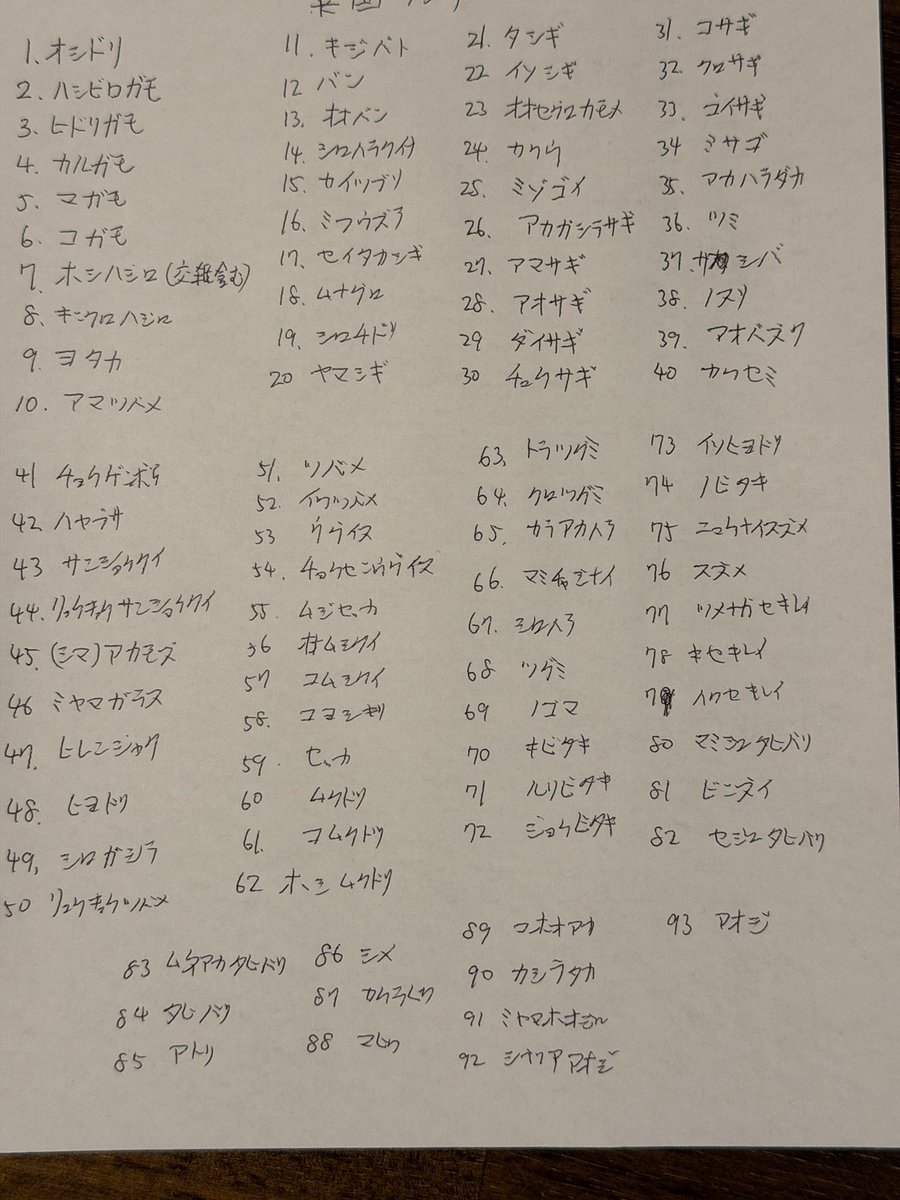 粟国
1. オシドリ
2. ハシビロガモ
3. ヒドリガモ
4. カルガモ
5. マガモ
6. コガモ
7. ホシハジロ(交雑含む)
8. キンクロハジロ
9. ヨタカ
10. アマツバメ
11. キジバト
12 バン
13. オオバン
14. シロハラクイナ
15. カイツブリ
16. ミフウズラ
17. セイタカシギ
18. ムナグロ
19. シロチドリ
20 ヤマシギ
21. タシギ
22 イソシギ
23 オオセグロカモメ
24. カワウ
25. ミゾゴイ
26. アカガシラサギ
27. アマサギ
28. アオサギ
29 ダイサギ
30 チュウサギ
31. コサギ
32. クロサギ
33. ゴイサギ
34 ミサゴ
35. アカハラダカ
36. ツミ
37. サシバ
38. ノスリ
39. アオバズク
40 カワセミ
41 チョウゲンボウ
42 ハヤブサ
43 サンショウクイ
44. リュウキュウサンショウクイ
45. (シマ)アカモズ
46 ミヤマガラス
47. ヒレンジャク
48. ヒヨドリ
49. シロガシラ
50 リュウキュウツバメ
51. ツバメ
52. イワツバメ
53 ウグイス
54. チョウセンウグイス
55. ムジセッカ
56 オオムシクイ
57 コムシクイ
58. コヨシキリ
59. セッカ
60 ムクドリ
61. コムクドリ
62 ホシムクドリ
63. トラツグミ
64. クロツグミ
65. カラアカハラ
66. マミチャジナイ
67. シロハラ
68 ツグミ
69 ノゴマ
70 キビタキ
71 ルリビタキ
72 ジョウビタキ
73 イソヒヨドリ
74 ノビタキ
75 ニュウナイスズメ
76 スズメ
77 ツメナガセキレイ
78 キセキレイ
79 ハクセキレイ
80 マミジロタヒバリ
81 ビンズイ
82 セジロタヒバリ
83 ムネアカタヒバリ
84 タヒバリ
85 アトリ
86 シメ
87 カワラヒワ
88 マヒワ
89 コホオアカ
90 カシラダカ
91 ミヤマホオジロ
92 シベリアアオジ
93 アオジ